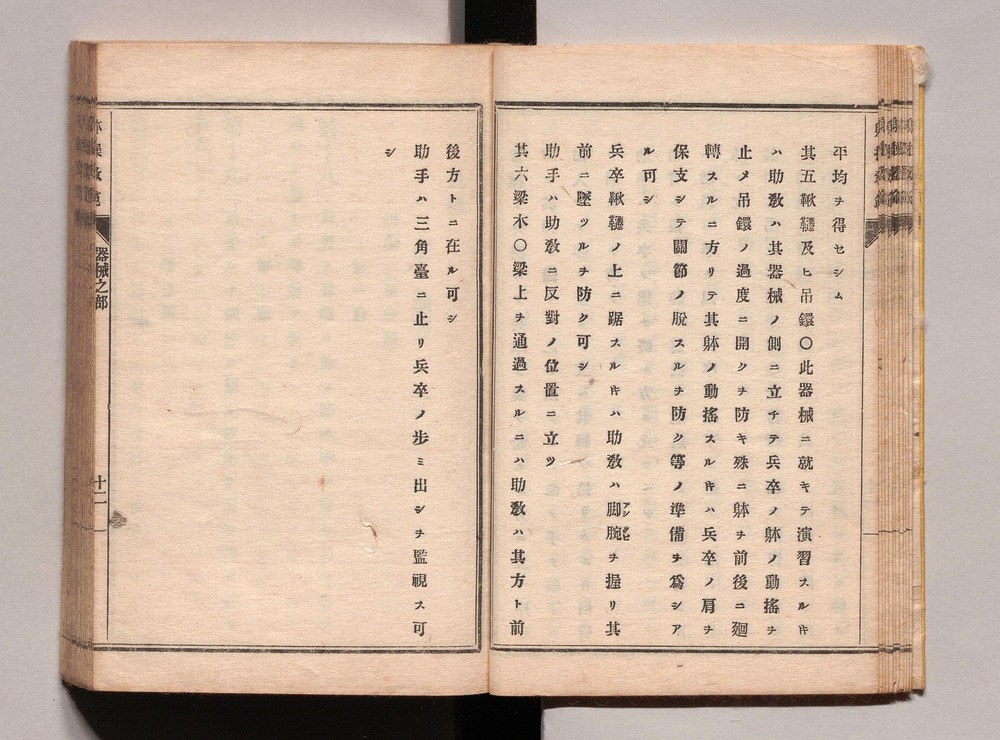 平均ヲ得セシム
其五鞦韆及ヒ吊鐶〇此器械ニ就キテ演習スルキ
ハ助敎ハ其器械ノ側ニ立チテ兵卒ノ躰ノ動搖ヲ
止メ吊鐶ノ過度ニ開クヲ防キ殊ニ躰ヲ前後ニ廻
轉スルニ方リテ其躰ノ動搖スルキハ兵卒ノ肩ヲ
保支シテ關節ノ脫スルヲ防ク等ノ準備ヲ爲シア
ル可シ
兵卒鞦韆ノ上ニ踞スルキハ助敎ハ脚腕ヲ握リ其
前ニ墜ツルヲ防ク可シ
助手ハ助敎ニ反對ノ位置ニ立ツ
其六梁木〇梁上ヲ通過スルニハ助敎ハ其方ト前
後方トニ在ル可シ
助手ハ三角臺ニ止リ兵卒ノ步ミ出シヲ監視ス可
シ
器械之部
十二